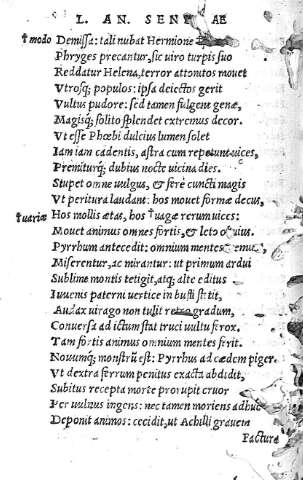 L. AN. SEN AE
†modo Demissa: tali nubat Hermione
Phryges precantur, sic uiro turpis suo
Reddatur Helena, terror attonitos mouet
Vtrosq; populos: ipsa deiectos gerit
Vultus pudore: sed tamen fulgent genæ,
Magisq; solito splendet extremus decor.
Vt esse Phœbi dulcius lumen solet
Iam iam cadentis, astra cum repetunt uices,
Premiturq; dubius nocte uicina dies.
Stupet omne uulgus, & ferè cuncti magis
Vt peritura laudant: hos mouet formæ decus,
†uariæ Hos mollis ætas, hos †uagæ rerum uices:
Mouet animus omnes fortis, & leto obuius.
Pyrrhum antecedit: omnium mentes
Miserentur, ac mirantur: ut primum ardui
Sublime montis tetigit, atq; alte editus
Iuuenis paterni uertice in busti stetit,
Audax uirago non tulit retro gradum,
Conuersa ad ictum stat truci uultu ferox.
Tam fortis animus omnium mentes ferit.
Nouumq; monstrũ est: Pyrrhus ad cædem piger.
Vt dextra ferrum penitus exacta abdidit,
Subitus recepta morte prorupit cruor
Per uulnus ingens: nec tamen moriens adhuc
Deponit animos: cecidit, ut Achilli grauem
Factura